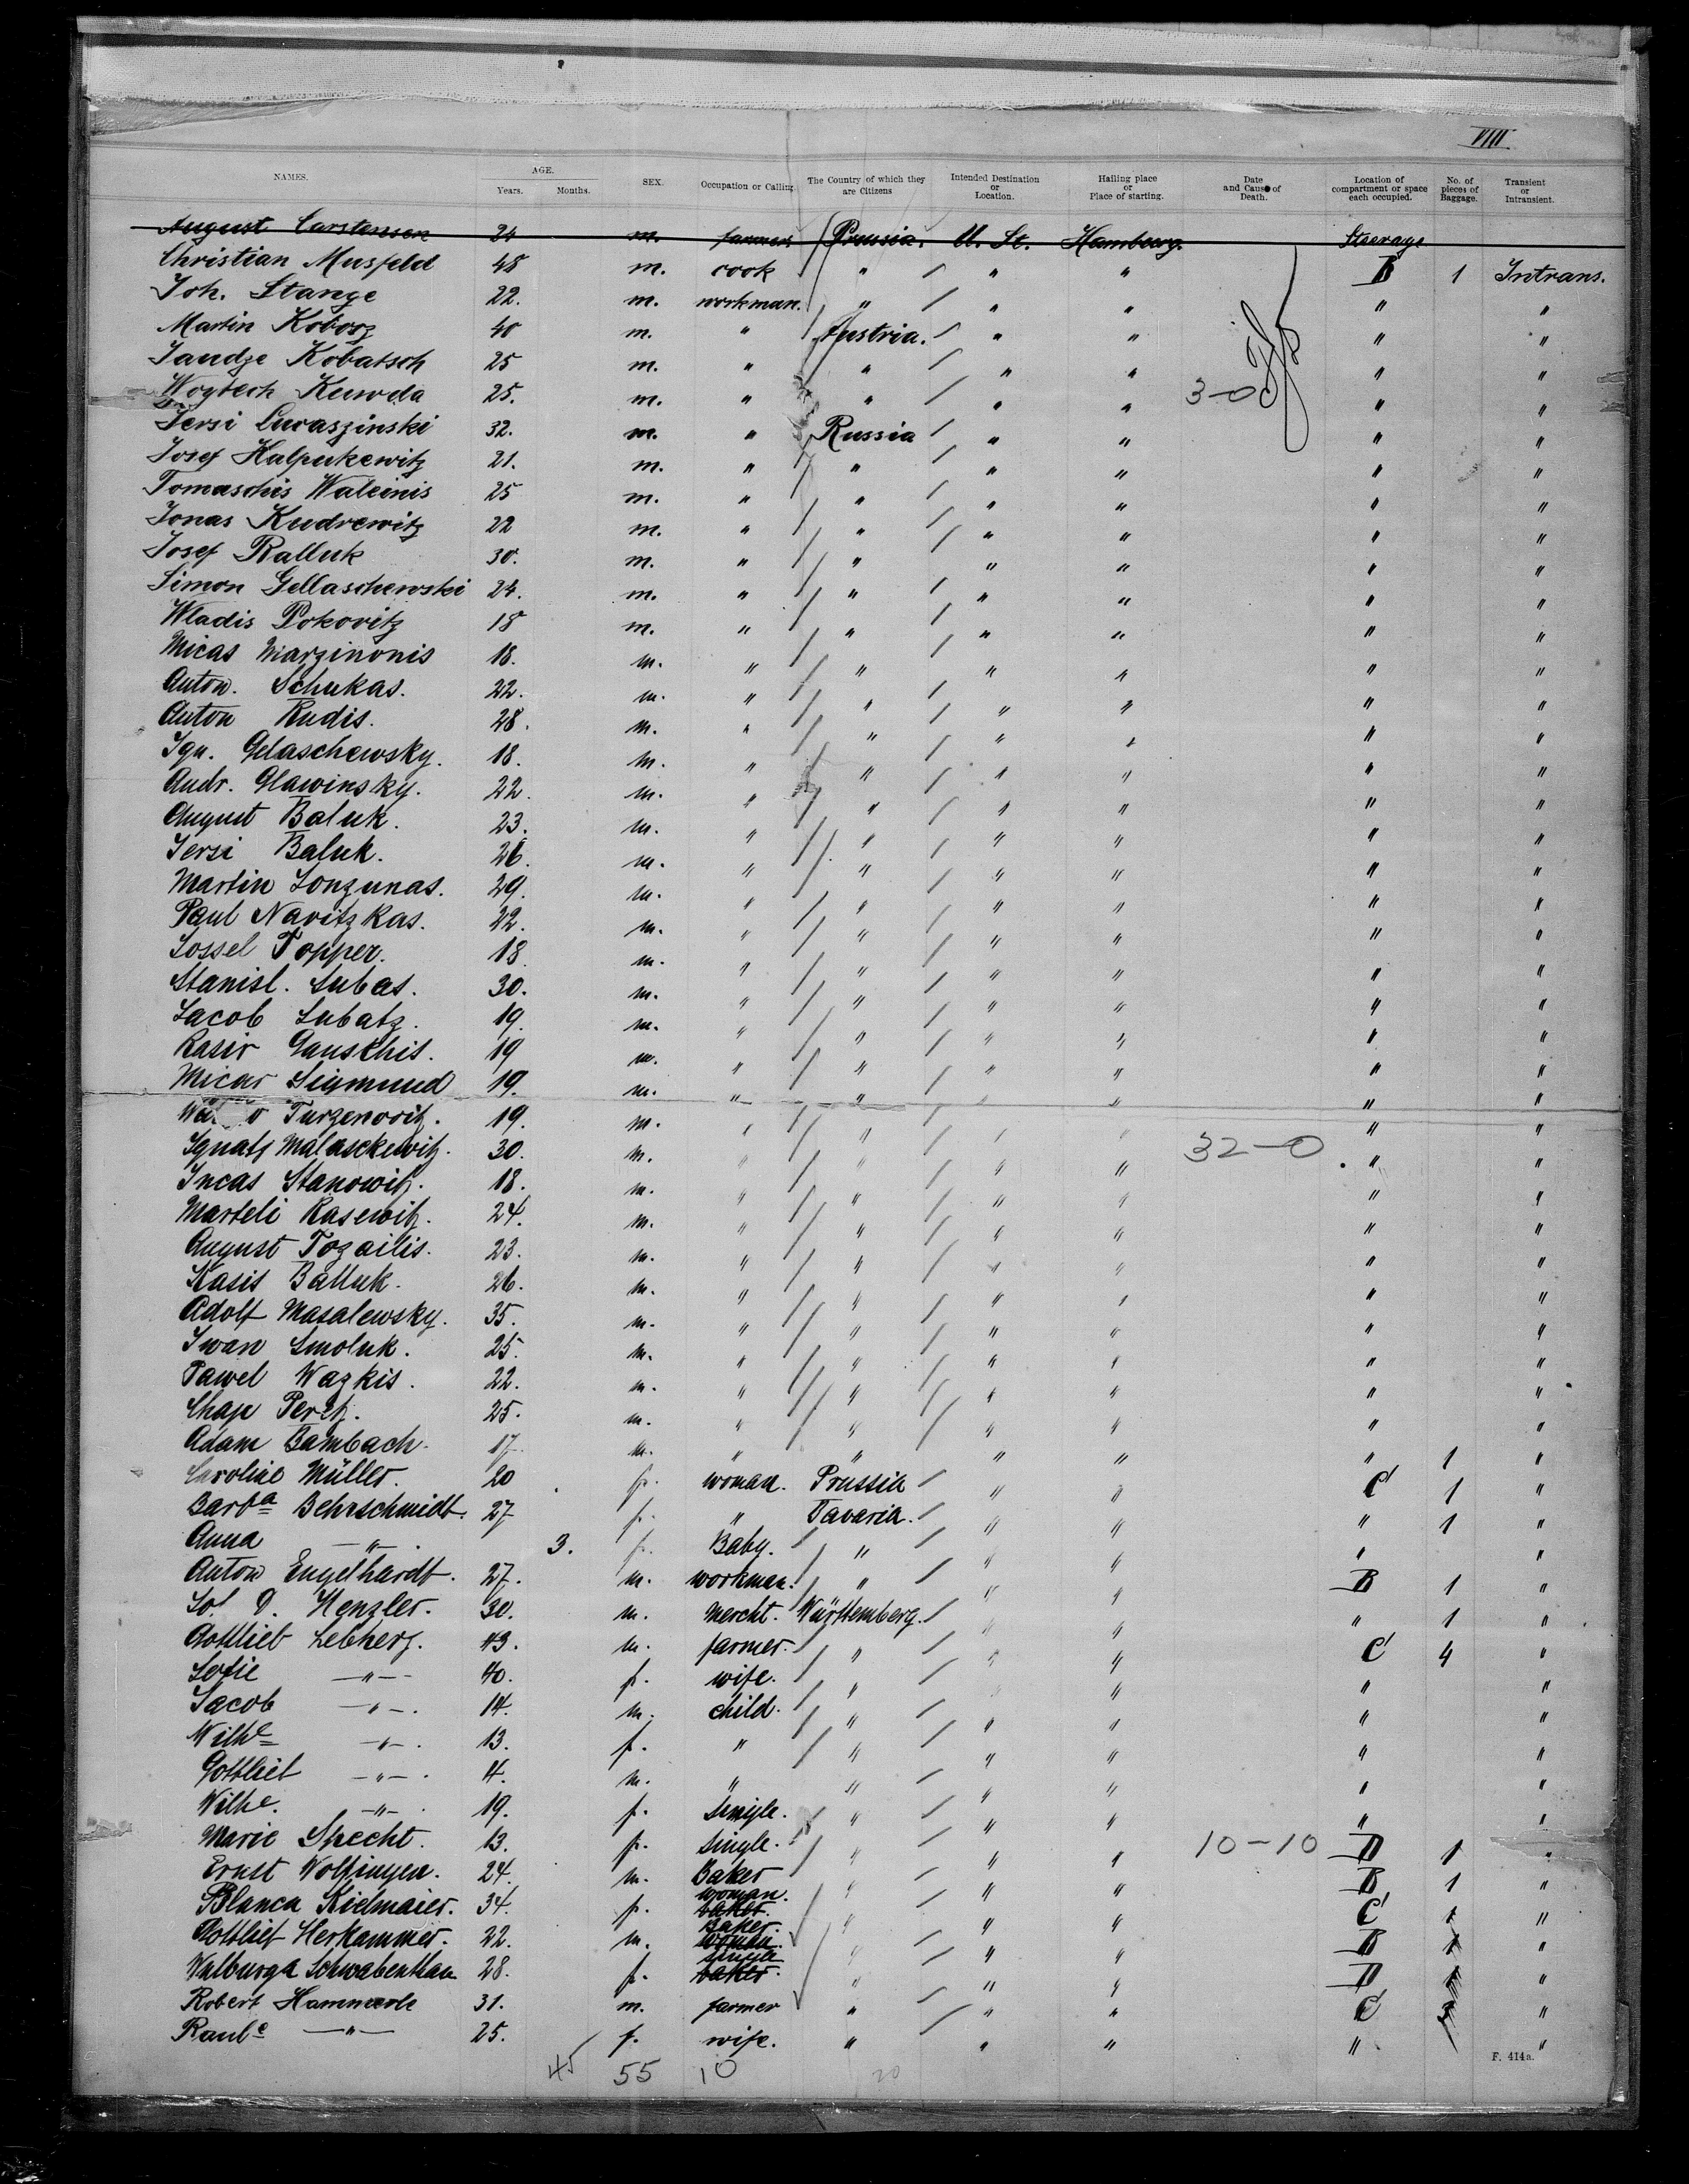 VIII
NAMES. AGE. Years. Months. SEX. Occupation or Calling. The Country of which they are Citizens Intended Destination or Location. Hailing place or Place of starting. Date and Cause of Death. Location of compartment or space each occupied. No. of pieces of Baggage. Transient or Intransient.
August Carstensen 24 m. farmer Prussia. U. St. Hamburg. Steerage
Christian Musfeld 48 m. cook " / " " B 1 Intrans.
Joh. Stange 22. m. workman. " / " " " "
Martin Kobosz 40 m. " Austria. / " " " "
Jandze Kobatsch 25 m. " " / " " " "
Woytech Kuwda 25. m. " " / " " 3-0 " "
Jersi Lucaszinski 32. m. " Russia / " " " "
Josef Kalpukewitz 21. m. " " / " " " "
Tomaschis Waleinis 25 m. " " / " " " "
Jonas Kudrewitz 22 m. " " / " " " "
Josef Ralluk 30. m. " " / " " " "
Simon Gellaschewski 24. m. " " / " " " "
Wladis Pokovitz 18 m. " " / " " " "
Micas Marzinonis 18. m. " " / " " " "
Anton. Schukas. 22. m. " " / " " " "
Anton Rudis. 28. m. " " / " " " "
Ign. Gelaschewsky. 18. m. " " / " " " "
Andr. Glawinsky. 22. m. " " / " " " "
August Baluk. 23. m. " " / " " " "
Jersi Baluk. 26. m. " " / " " " "
Martin Lonzunas. 29. m. " " / " " " "
Paul Navitzkas. 22. m. " " / " " " "
Jossel Topper. 18. m. " " / " " " "
Stanisl. Subas. 30. m. " " / " " " "
Jacob Subatz. 19. m. " " / " " " "
Kasir Gauschis. 19 m. " " / " " " "
Micar Sigmund 19. m. " " / " " " "
Turzenovitz. 19. m. " " / " " " "
Ignatz Malasckewitz. 30. m. " " / " " 32-0 " "
Incas Stanowitz. 18. m. " " / " " " "
Marteli Kasewitz. 24. m. " " / " " " "
August Tozailis. 23. m. " " / " " " "
Kasis Balluk. 26. m. " " / " " " "
Adolf Masalewsky. 35. m. " " / " " " "
Iwan Smoluk. 25. m. " " / " " " "
Pawel Wazkis. 22. m. " " / " " " "
Chaje Peretz. 25. m. " " / " " " "
Adam Bambach. 17. m. " " " " " 1 "
Caroline Müller. 20 f. woman. Prussia / " " C 1 "
Barba Behrschmidt. 27 f. " Bavaria. / " " " 1 "
Anna —"— 3. f. Baby. " / " " " "
Anton Engelhardt. 27. m. workman. " / " " B 1 "
D. Henzler. 30. m. Mercht. Württemberg. / " " " 1 "
Gottlieb Lebherz. 43. m. farmer. " / " " C 4 "
Sofie —"— 40. f. wife. " / " " " "
Jacob —"—. 14. m. child. " / " " " "
Wilhe —"—. 13. f. " " / " " " "
Gottlieb —"—. 4. m. " " / " " " "
Wilhe. —"—. 19. f. single. " / " " " "
Marie Specht. 13. f. single. " / " " 10-10 D 1 "
Ernst Wolfingen. 24. m. Baker " / " " B 1 "
Blanca Kielmaier. 34. f. woman. baker. " / " " C 1 "
Gottlieb Herkammer. 22. m. Baker. woman. " / " " B 1 "
Walburga Schwabenthan 28. f. single baker. " / " " D "
Robert Hammerle 31. m. farmer " / " " C "
Raule —"— 25. f. wife. " " " " "
45 55 10 20
F. 414a.